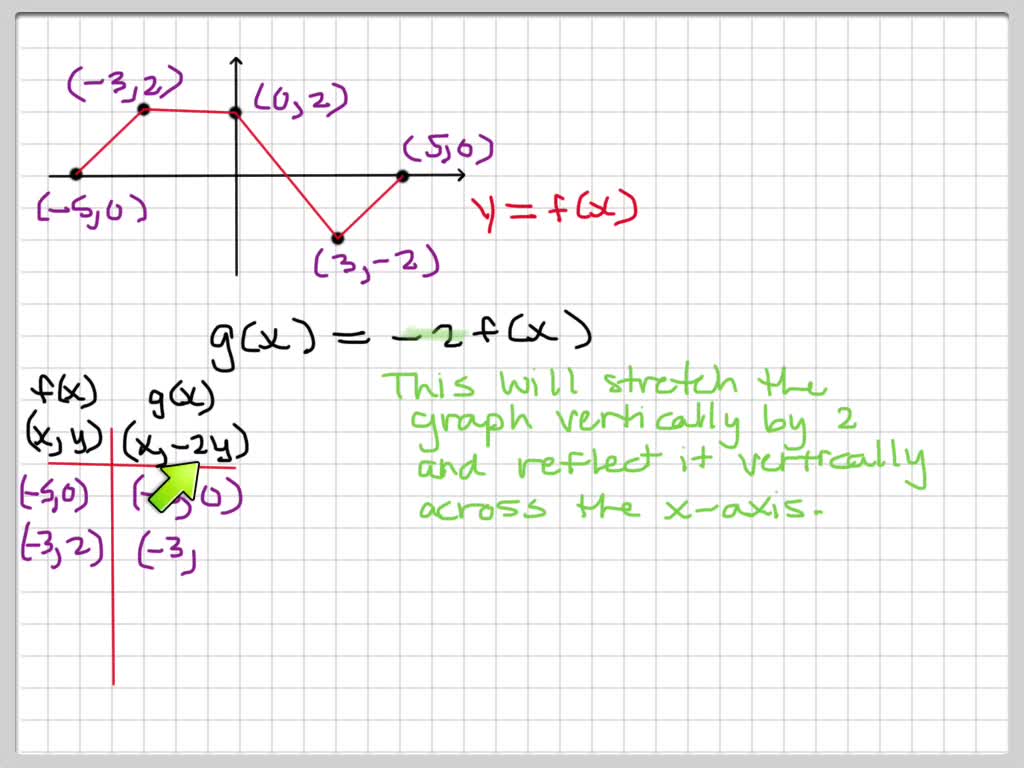 (-3,2)
(0,2)
(5,0)
(-5,0)
y = f(x)
(3,-2)
g(x) = -2f(x)
This will stretch the
graph vertically by 2
and reflect it vertically
across the x-axis.
f(x) g(x)
(x,y) (x,-2y)
(-5,0) (- ,0)
(-3,2) (-3,